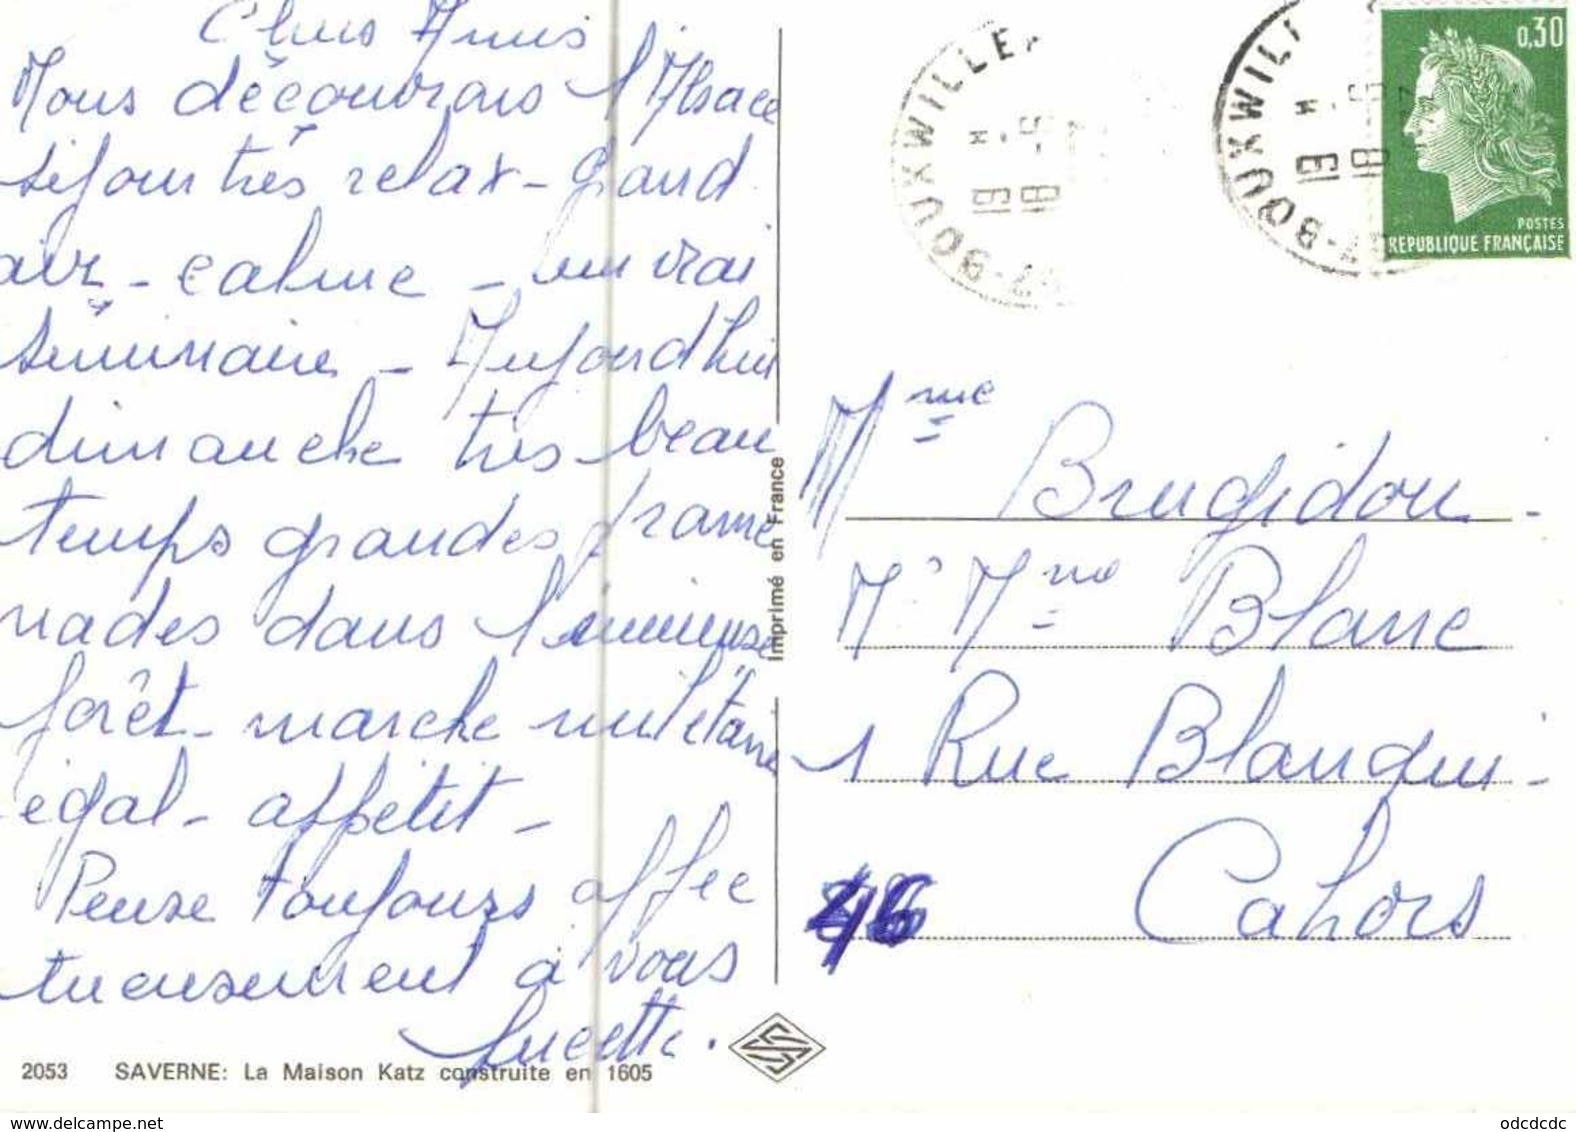 Chers Amis
Nous découvrons l'Alsace
séjour très relax - grand
air - calme - un vrai
séminaire - Aujourd'hui
dimanche très beau
temps grandes prome
nades dans l'immense
forêt - marche militaire
égal - appétit -
Pense toujours affec
tueusement à vous
Lucette.
2053 SAVERNE: La Maison Katz construite en 1605
Imprimé en France
67-BOUXWILLER
67-BOUXWILL
0,30
POSTES
REPUBLIQUE FRANÇAISE
Mme Brugidou -
Mr Mme Blanc
1 Rue Blanqui -
46 Cahors
odcdcdc